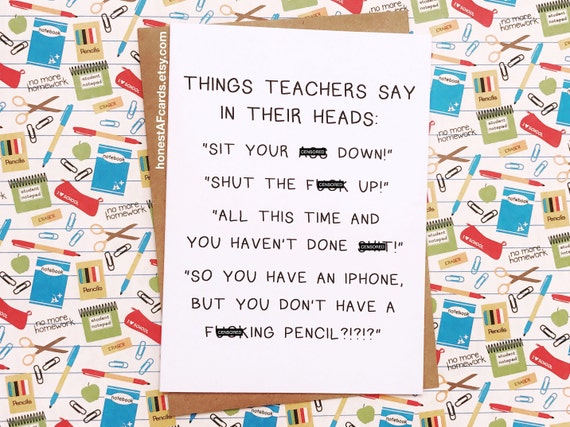 honestAFcards.etsy.com
THINGS TEACHERS SAY
IN THEIR HEADS:
"SIT YOUR CENSORED DOWN!"
"SHUT THE FCENSORED UP!"
"ALL THIS TIME AND
YOU HAVEN'T DONE CENSORED!"
"SO YOU HAVE AN IPHONE,
BUT YOU DON'T HAVE A
FCENSOREDKING PENCIL?!?!?"
notebook
Pencils
student
notepad
no more
homework
I ♥ SCHOOL
ERASER